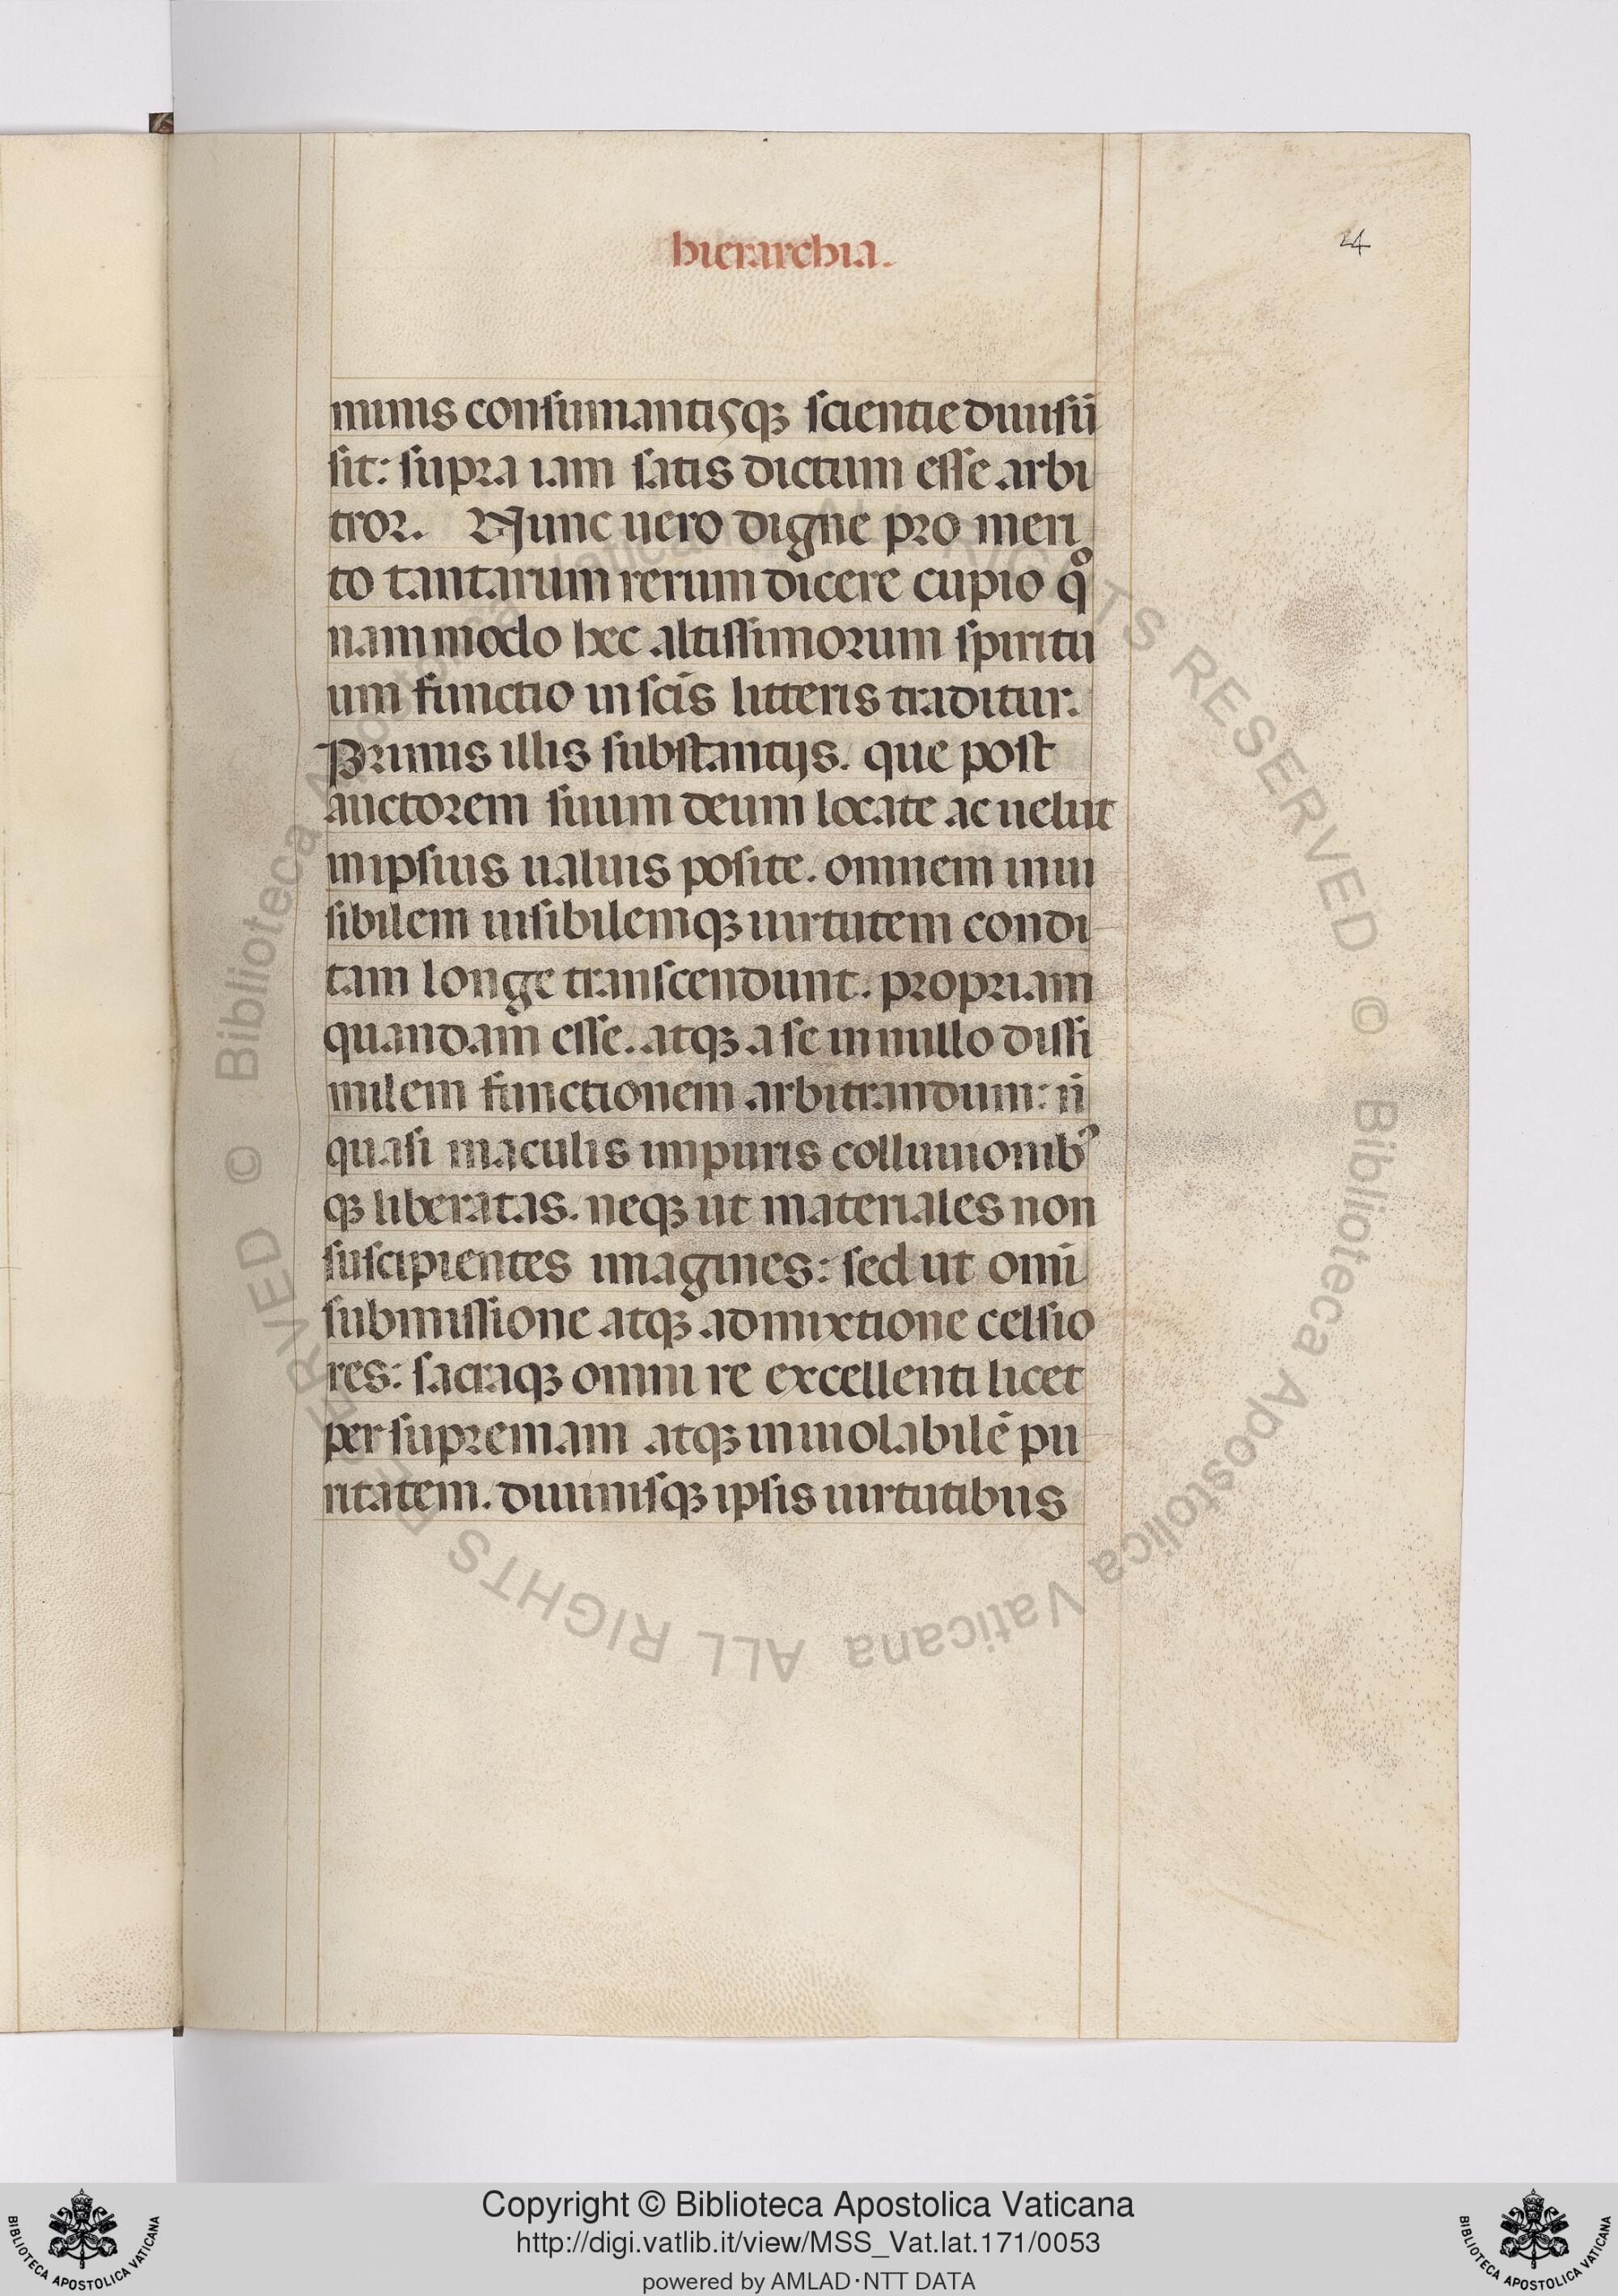 hierarchia.
24
minis consumantisqꝫ scientie diuisū
sit: supra iam satis dictum esse arbi
tror. Nunc uero digne pro meri
to tantarum rerum dicere cupio qͦ
nam modo hec altissimorum spiritu
um functio in scis̄ litteris traditur.
Primis illis substantijs. que post
auctorem suum deum locate ac uelut
in ipsius ualuis posite. omnem inui
sibilem uisibilemqꝫ uirtutem condi
tam longe transcendunt. propriam
quandam esse. atqꝫ a se in nullo dissi
milem functionem arbitrandum: n̄
quasi maculis impuris colluuionibꝰ
qꝫ liberatas. neqꝫ ut materiales non
suscipientes imagines: sed ut omī
submissione atqꝫ admixtione celsio
res: sacraqꝫ omni re excellenti licet
per supremam atqꝫ inuiolabilē pu
ritatem. diuinisqꝫ ipsis uirtutibus
© Biblioteca Apostolica Vaticana ALL RIGHTS RESERVED
© Biblioteca Apostolica Vaticana ALL RIGHTS RESERVED
Copyright © Biblioteca Apostolica Vaticana
http://digi.vatlib.it/view/MSS_Vat.lat.171/0053
powered by AMLAD·NTT DATA
BIBLIOTECA APOSTOLICA VATICANA
BIBLIOTECA APOSTOLICA VATICANA